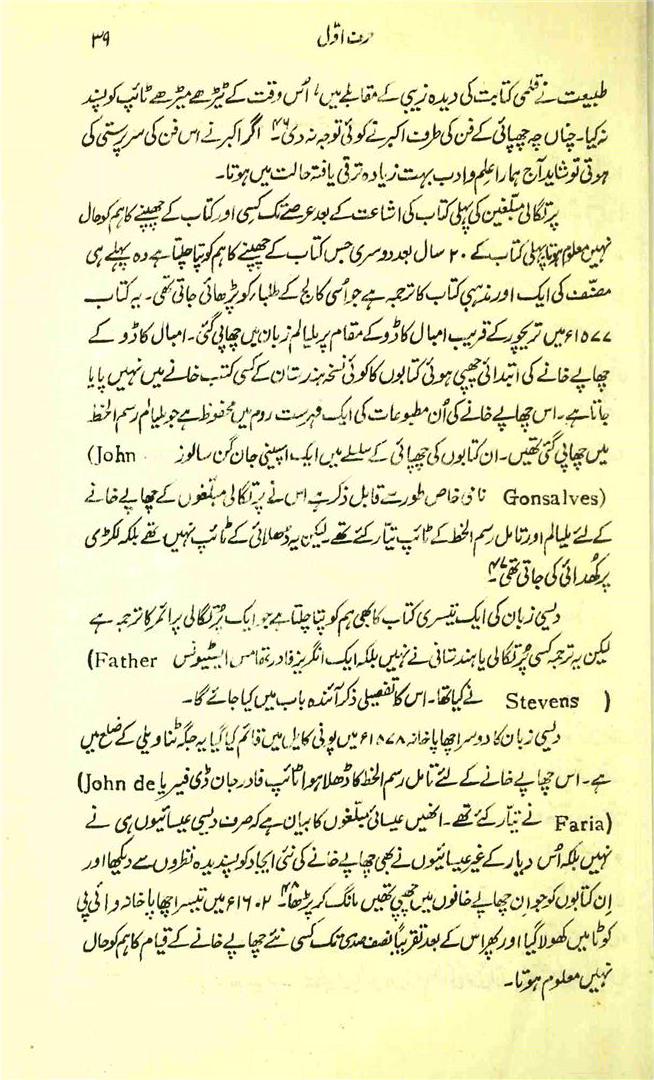 حرف اوّل ۳۹
طبیعت نے قلمی کتابت کی دیدہ زیبی کے مقابلے میں اُس وقت کے ٹیڑھے میڑھے ٹائپ کو پسند
نہ کیا۔ چناں چہ چھپائی کے فن کی طرف اکبر نے کوئی توجہ نہ دی۴۶۔ اگر اکبر نے اس فن کی سرپرستی کی
ہوتی تو شاید آج ہمارا علم و ادب بہت زیادہ ترقی یافتہ حالت میں ہوتا۔
پرتگالی مبلّغین کی پہلی کتاب کی اشاعت کے بعد عرصے تک کسی اور کتاب کے چھپنے کا ہم کو حال
نہیں معلوم ہوتا پہلی کتاب کے ۲۰ سال بعد دوسری جس کتاب کے چھپنے کا ہم کو پتا چلتا ہے وہ پہلے ہی
مصنّف کی ایک اور مذہبی کتاب کا ترجمہ ہے جو اُسی کالج کے طلباء کو پڑھائی جاتی تھی۔ یہ کتاب
۱۵۷۷ء میں تریچور کے قریب امبال کاڈو کے مقام پر ملیالم زبان میں چھاپی گئی۔ امبال کاڈو کے
چھاپے خانے کی ابتدائی چھپی ہوئی کتابوں کا کوئی نسخہ ہندستان کے کسی کتب خانے میں نہیں پایا
جاتا ہے۔ اس چھاپے خانے کی اُن مطبوعات کی ایک فہرست روم میں محفوظ ہے جو ملیالم رسم الخط
میں چھاپی گئی تھیں۔ ان کتابوں کی چھپائی کے سلسلے میں ایک اسپینی جان گن سالوز (John
Gonsalves) نامی خاص طور سے قابل ذکر ہے اس نے پرتگالی مبلّغوں کے چھاپے خانے
کے لئے ملیالم اور تامل رسم الخط کے ٹائپ تیار کئے تھے۔ لیکن یہ ڈھلائی کے ٹائپ نہیں تھے بلکہ لکڑی
پر کھُدائی کی جاتی تھی۴۷۔
دیسی زبان کی ایک تیسری کتاب کا بھی ہم کو پتا چلتا ہے جو ایک پُرتگالی پرائمر کا ترجمہ ہے
لیکن یہ ترجمہ کسی پُرتگالی یا ہندستانی نے نہیں بلکہ ایک انگریز فادر تھامس اسٹیونس (Father
Stevens ) نے کیا تھا۔ اس کا تفصیلی ذکر آئندہ باب میں کیا جائے گا۔
دیسی زبان کا دوسرا چھاپا خانہ ۱۵۷۸ء میں پونی کایل میں قائم کیا گیا یہ جگہ ٹناویلی کے ضلع میں
ہے۔ اس چھاپے خانے کے لئے تامل رسم الخط کا ڈھلا ہوا ٹائپ فادر جان ڈی فیریا (John de
Faria) نے تیار کئے تھے۔ انھیں عیسائی مبلّغوں کا بیان ہے کہ صرف دیسی عیسائیوں ہی نے
نہیں بلکہ اُس دیار کے غیر عیسائیوں نے بھی چھاپے خانے کی نئی ایجاد کو پسندیدہ نظروں سے دیکھا اور
اِن کتابوں کو جو ان چھاپے خانوں میں چھپی تھیں مانگ کر پڑھا۴۸۔ ۱۶۰۲ء میں تیسرا چھاپا خانہ وائی پی
کوٹا میں کھولا گیا اور پھر اس کے بعد تقریباً نصف صدی تک کسی نئے چھاپے خانے کے قیام کا ہم کو حال
نہیں معلوم ہوتا۔